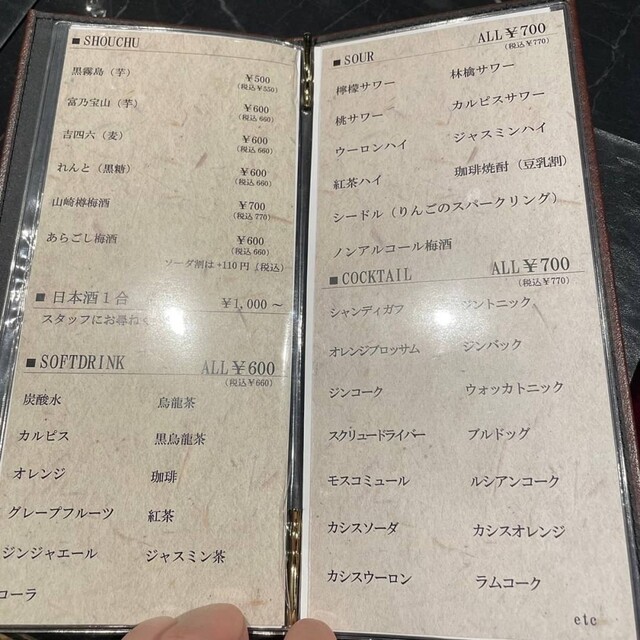 ■ SHOUCHU
黒霧島（芋） ¥500
(税込¥550)
富乃宝山（芋） ¥600
(税込 660)
吉四六（麦） ¥600
(税込 660)
れんと（黒糖） ¥600
(税込 660)
山崎樽梅酒 ¥700
(税込 770)
あらごし梅酒 ¥600
(税込 660)
ソーダ割は +110円（税込）
■ 日本酒１合 ¥1,000～
スタッフにお尋ねく
■ SOFTDRINK ALL ¥600
(税込¥660)
炭酸水 烏龍茶
カルピス 黒烏龍茶
オレンジ 珈琲
グレープフルーツ 紅茶
ジンジャエール ジャスミン茶
コーラ
■ SOUR ALL ¥700
(税込 ¥770)
檸檬サワー 林檎サワー
桃サワー カルピスサワー
ウーロンハイ ジャスミンハイ
紅茶ハイ 珈琲焼酎（豆乳割）
シードル（りんごのスパークリング）
ノンアルコール梅酒
■ COCKTAIL ALL ¥700
(税込¥770)
シャンディガフ ジントニック
オレンジブロッサム ジンバック
ジンコーク ウォッカトニック
スクリュードライバー ブルドッグ
モスコミュール ルシアンコーク
カシスソーダ カシスオレンジ
カシスウーロン ラムコーク
etc